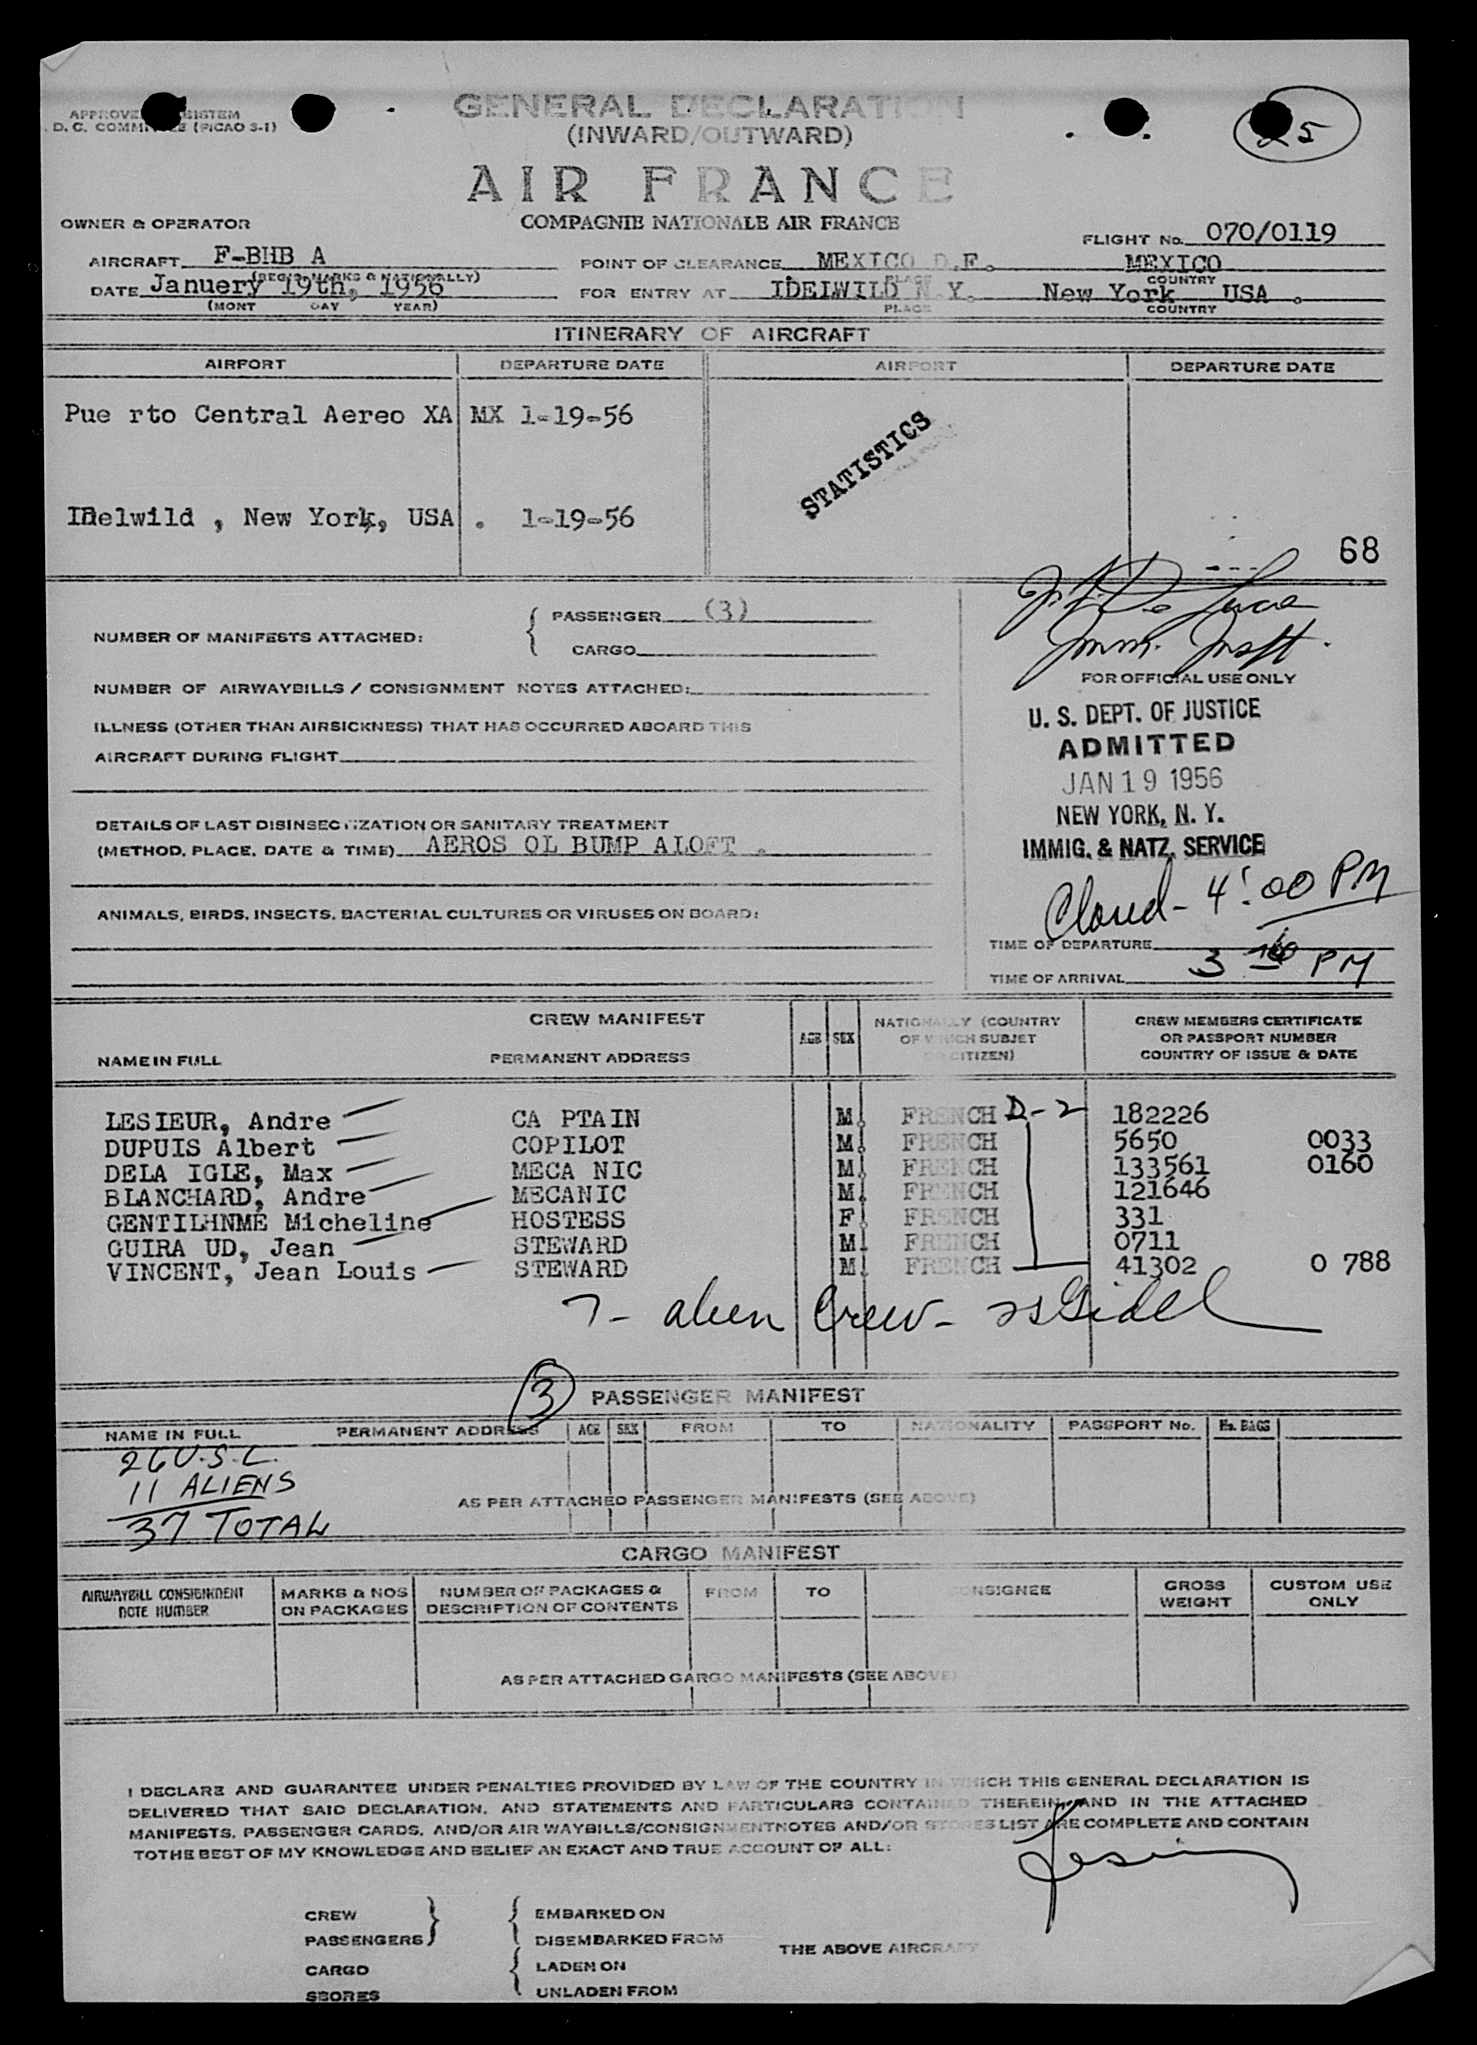 GENERAL DECLARATION
(INWARD/OUTWARD)
D. C. COMMITTEE (PICAO 3-1)
25
AIR FRANCE
COMPAGNIE NATIONALE AIR FRANCE
OWNER & OPERATOR
FLIGHT No. 070/0119
AIRCRAFT F-BHB A
(REGIS. MARKS & NATIONALLY)
POINT OF CLEARANCE MEXICO D.F. MEXICO
PLACE COUNTRY
DATE Januery 19th, 1956
(MONT DAY YEAR)
FOR ENTRY AT IDEIWILD N Y. New York USA .
PLACE COUNTRY
ITINERARY OF AIRCRAFT
AIRPORT DEPARTURE DATE AIRPORT DEPARTURE DATE
Pue rto Central Aereo XA MX 1-19-56
STATISTICS
Idelwild , New York, USA . 1-19-56
68
NUMBER OF MANIFESTS ATTACHED:
PASSENGER (3)
CARGO
Imm. Inspt.
NUMBER OF AIRWAYBILLS / CONSIGNMENT NOTES ATTACHED:
FOR OFFICIAL USE ONLY
ILLNESS (OTHER THAN AIRSICKNESS) THAT HAS OCCURRED ABOARD THIS
AIRCRAFT DURING FLIGHT
U. S. DEPT. OF JUSTICE
ADMITTED
JAN 19 1956
NEW YORK, N. Y.
IMMIG. & NATZ. SERVICE
DETAILS OF LAST DISINSECTIZATION OR SANITARY TREATMENT
(METHOD, PLACE, DATE & TIME) AEROS OL BUMP ALOFT .
ANIMALS, BIRDS, INSECTS, BACTERIAL CULTURES OR VIRUSES ON BOARD:
Closed - 4:00 PM
TIME OF DEPARTURE
TIME OF ARRIVAL 3 PM
CREW MANIFEST
NAME IN FULL PERMANENT ADDRESS AGE SEX NATIONALLY (COUNTRY OF WHICH SUBJET OR CITIZEN) CREW MEMBERS CERTIFICATE OR PASSPORT NUMBER COUNTRY OF ISSUE & DATE
LESIEUR, Andre CA PTAIN M. FRENCH D-2 182226
DUPUIS Albert COPILOT M. FRENCH 5650 0033
DELA IGLE, Max MECA NIC M. FRENCH 133561 0160
BLANCHARD, Andre MECANIC M. FRENCH 121646
GENTILHNME Micheline HOSTESS F. FRENCH 331
GUIRA UD, Jean STEWARD M. FRENCH 0711
VINCENT, Jean Louis STEWARD M. FRENCH 41302 0 788
7- alien crew -
3 PASSENGER MANIFEST
NAME IN FULL PERMANENT ADDRESS AGE SEX FROM TO NATIONALITY PASSPORT No. No. BAGS
26 U.S.C.
11 ALIENS
37 TOTAL
AS PER ATTACHED PASSENGER MANIFESTS (SEE ABOVE)
CARGO MANIFEST
AIRWAYBILL CONSIGNMENT NOTE NUMBER MARKS & NOS ON PACKAGES NUMBER OF PACKAGES & DESCRIPTION OF CONTENTS FROM TO CONSIGNEE GROSS WEIGHT CUSTOM USE ONLY
AS PER ATTACHED CARGO MANIFESTS (SEE ABOVE)
I DECLARE AND GUARANTEE UNDER PENALTIES PROVIDED BY LAW OF THE COUNTRY IN WHICH THIS GENERAL DECLARATION IS
DELIVERED THAT SAID DECLARATION, AND STATEMENTS AND PARTICULARS CONTAINED THEREIN, AND IN THE ATTACHED
MANIFESTS, PASSENGER CARDS, AND/OR AIR WAYBILLS/CONSIGNMENTNOTES AND/OR STORES LIST ARE COMPLETE AND CONTAIN
TOTHE BEST OF MY KNOWLEDGE AND BELIEF AN EXACT AND TRUE ACCOUNT OF ALL:
CREW EMBARKED ON
PASSENGERS DISEMBARKED FROM
THE ABOVE AIRCRAFT
CARGO LADEN ON
STORES UNLADEN FROM